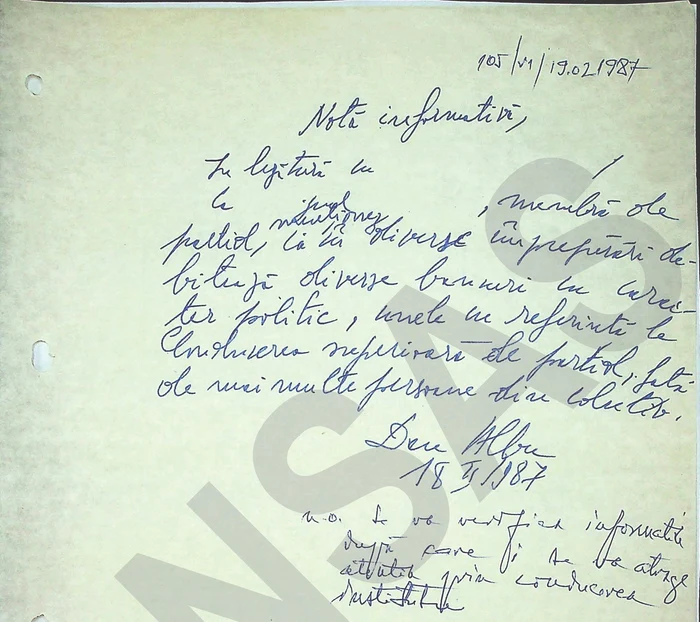 105/VI/19.02.1987
Notă informativă,
În legătură cu
la , membră de
menționez
partid, că în diverse împrejurări de-
bitează diverse bancuri cu carac-
ter politic, unele cu referință la
Conducerea superioară de partid, față
de mai multe persoane din colectiv.
Dan Albu
18 II 1987
n.o. Se va verifica informația
după care i se va atrage
atenția prin conducerea
Institutului
CNSAS